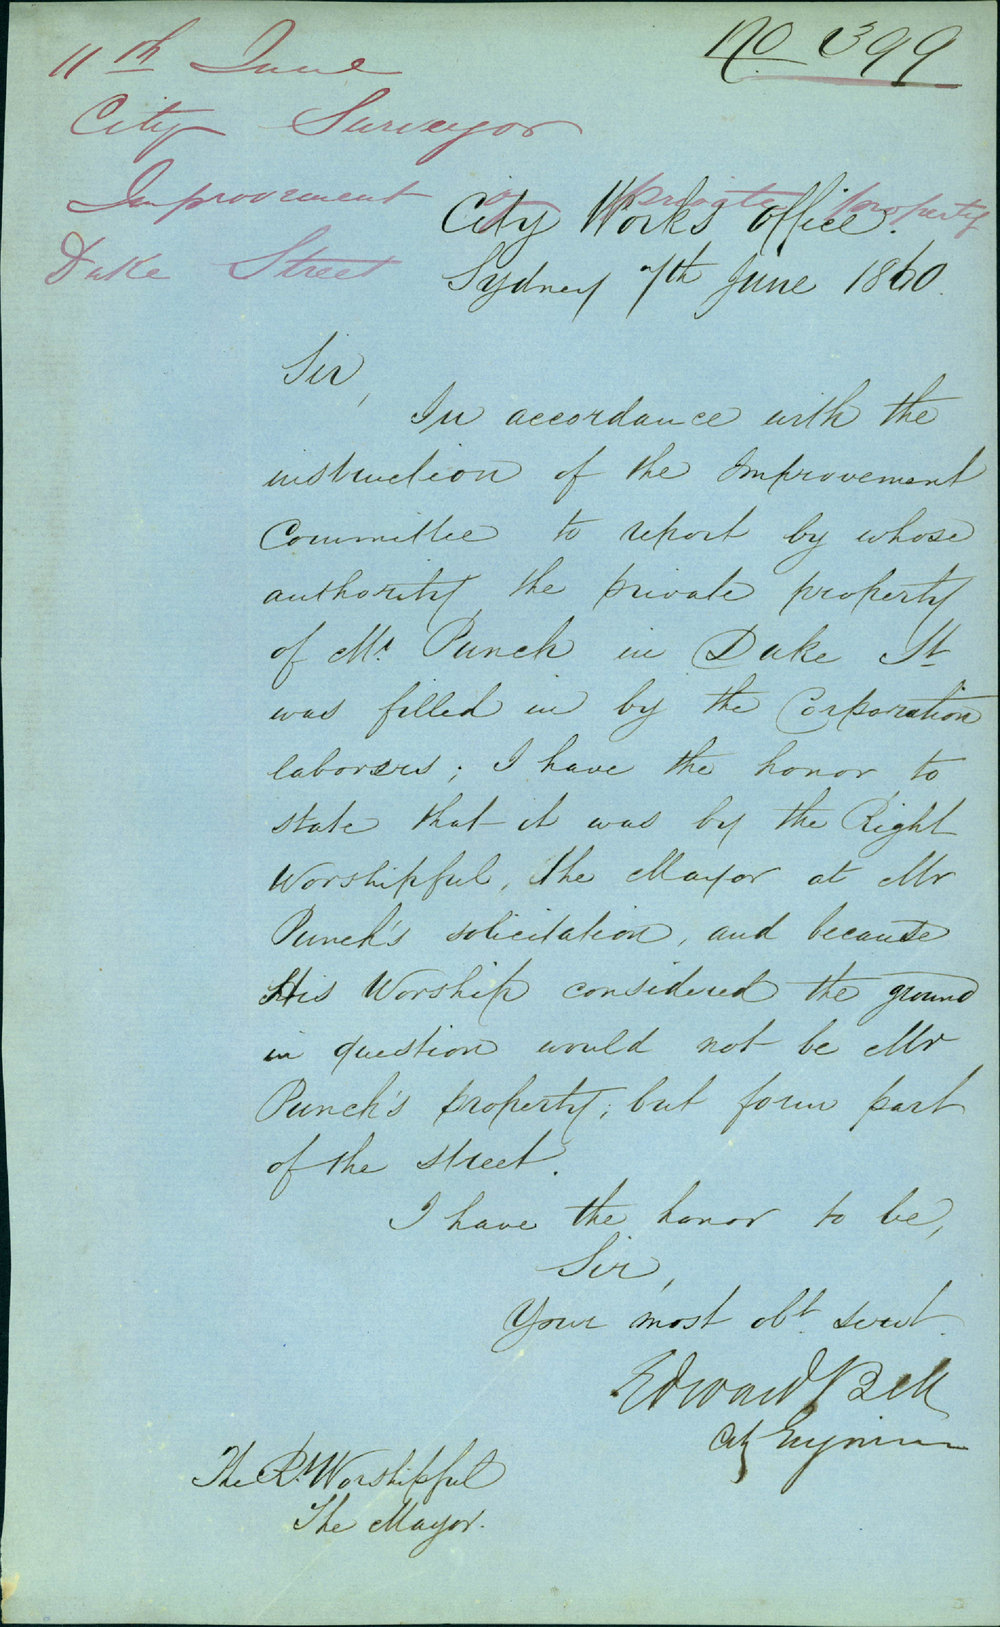 No 399
11th June
City Surveyor
Improvement in private property
Duke Street
City Works Office.
Sydney 7th June 1860.
Sir,
In accordance with the
instruction of the Improvement
Committee to report by whose
authority the private property
of Mr. Punch in Duke St
was filled in by the Corporation
laborers; I have the honor to
state that it was by the Right
Worshipful, the Mayor at Mr
Punch's solicitation, and because
His Worship considered the ground
in question would not be Mr
Punch's property; but form part
of the street.
I have the honor to be,
Sir,
Your most obt. servt.
Edward Bell
City Engineer
The Rt. Worshipful
The Mayor.